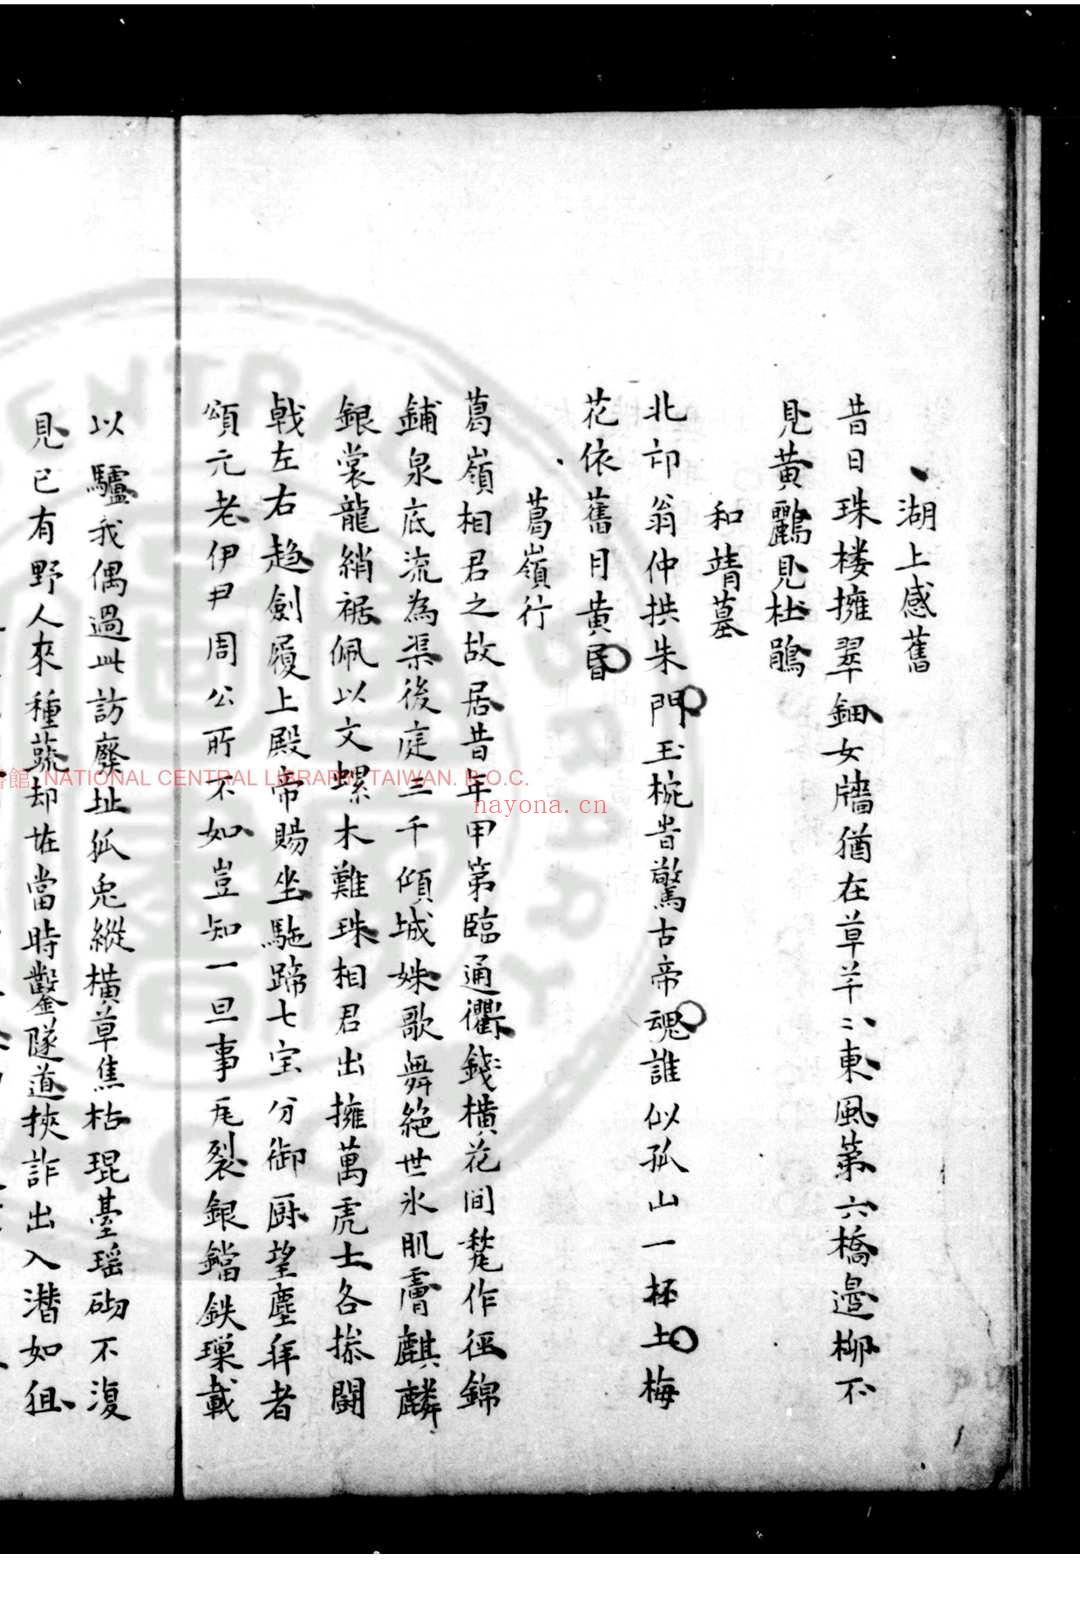 湖上感舊
昔日珠楼擁翠鈿女牆猶在草芊〻東風第六橋邉柳不
見黄鸝見杜鵑
和靖墓
北邙翁仲拱朱門玉椀昔驚古帝魂誰似孤山一抔土梅
花依舊月黄昏
葛嶺行
葛嶺相君之故居昔年甲第臨通衢錢横花間甃作徑錦
鋪泉底流為渠後庭三千傾城姝歌舞絶世氷肌膚麒麟
銀裳龍綃裾佩以文螺木難珠相君出擁萬虎士各搽闘
戟左右趋劍履上殿帝賜坐駞蹄七宝分御厨望塵拜者
頌元老伊尹周公所不如豈知一旦事瓦裂銀鐺鉄璅載
以驢我偶過此訪廢址狐兎縱横草焦枯琨臺瑶砌不復
見已有野人來種蔬却在當時鑿隧道挾詐出入潛如狙
NATIONAL CENTRAL LIBRARY, TAIWAN. R.O.C.
nayona.cn